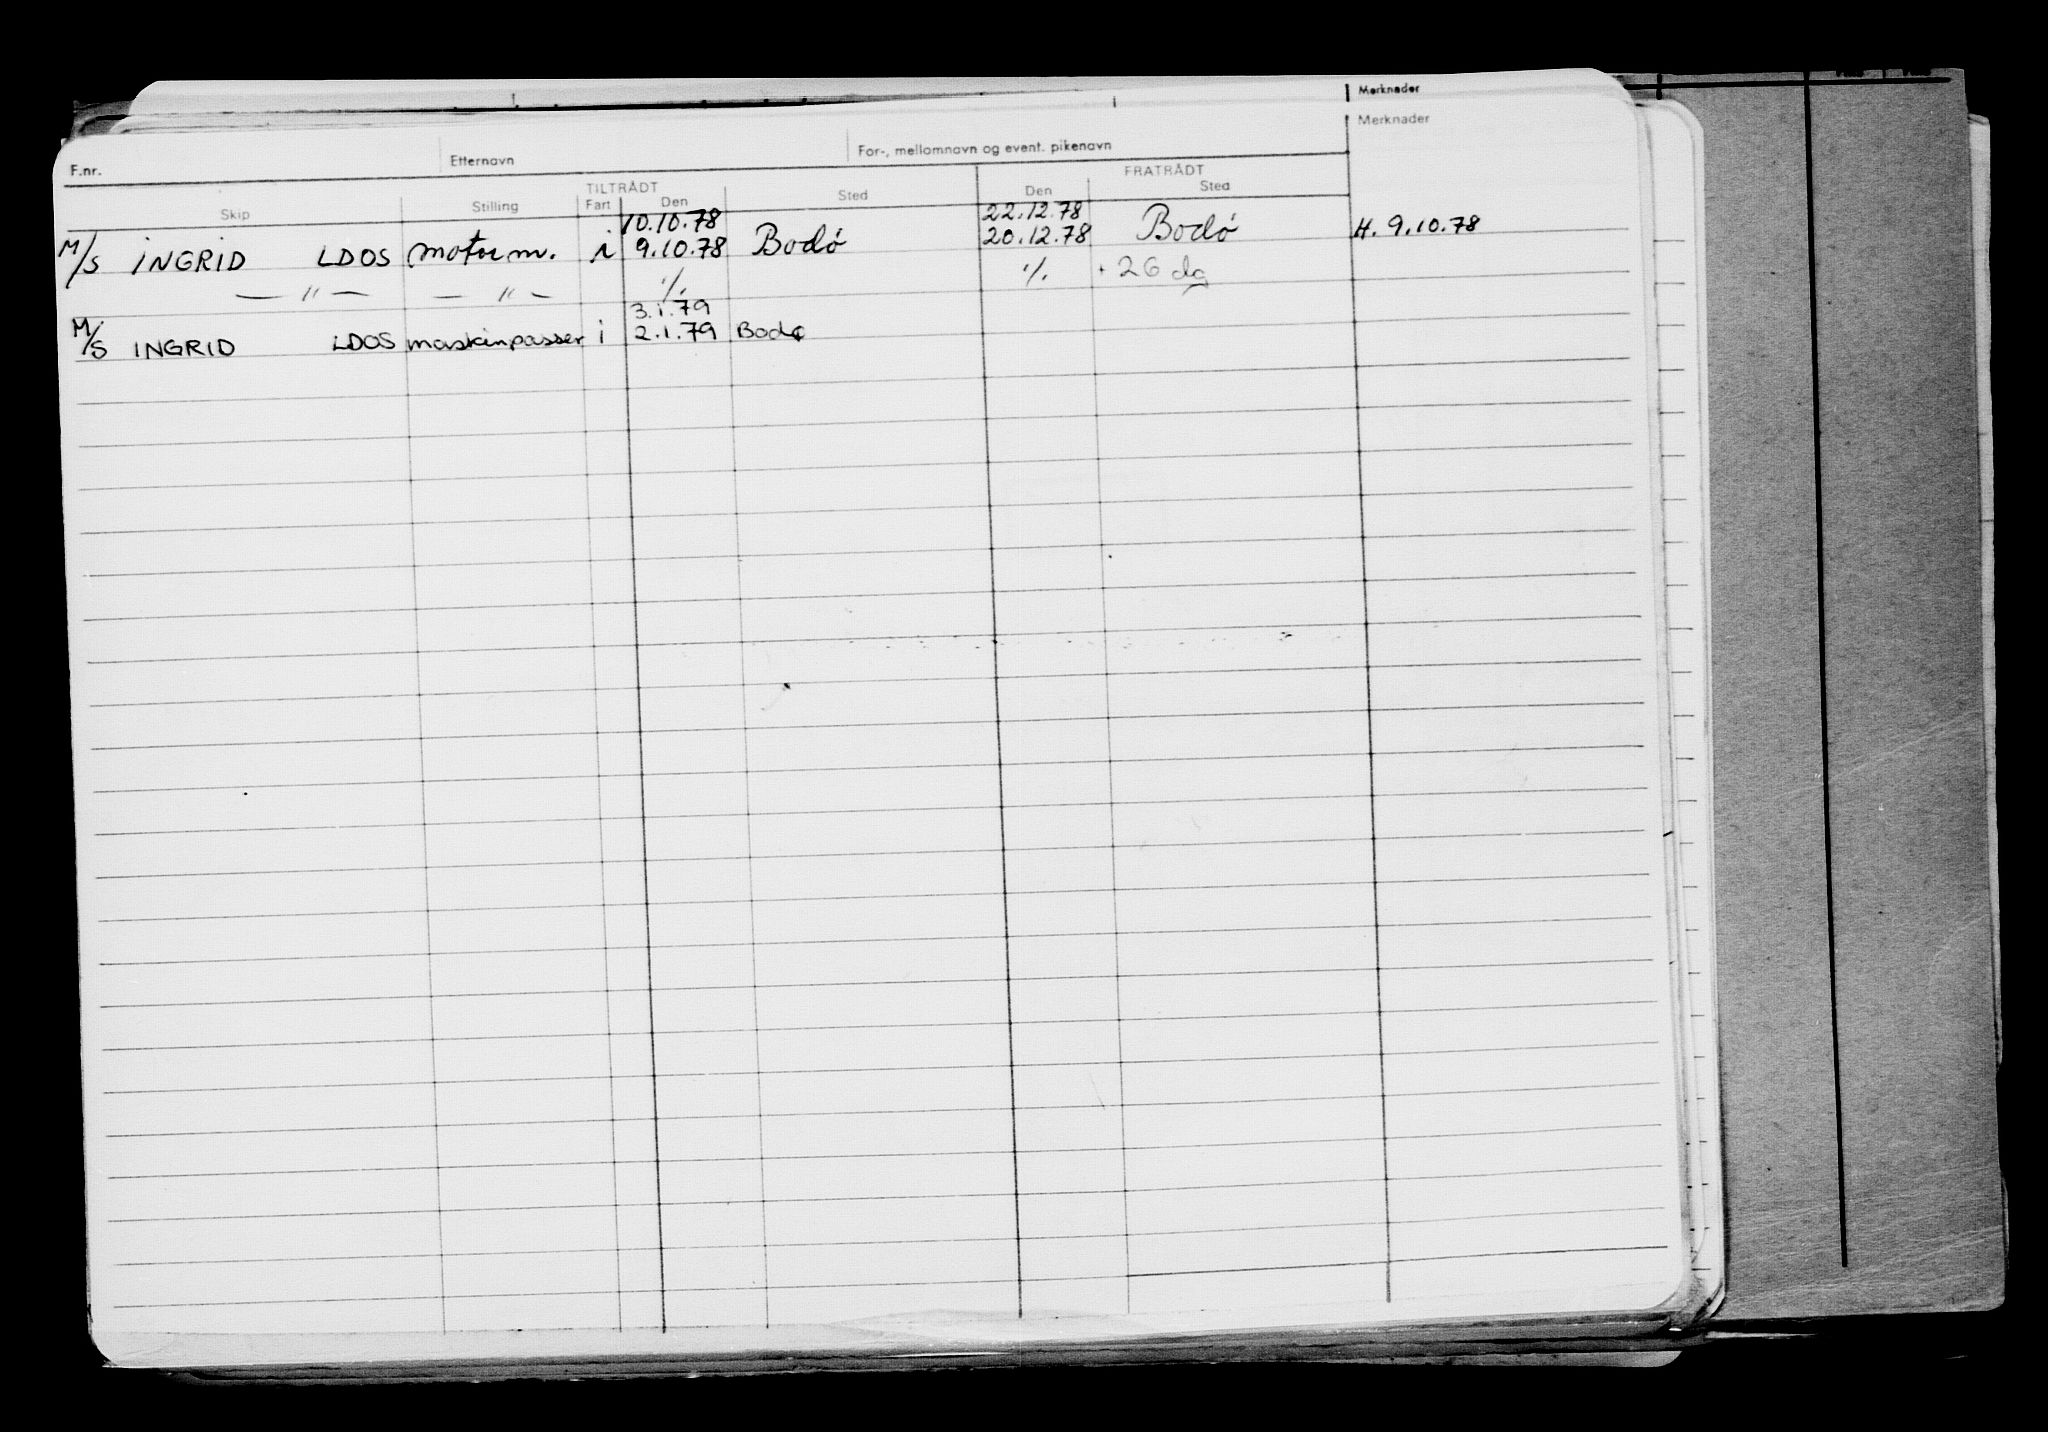 Merknader
Merknader
F.nr. Etternavn For-, mellomnavn og event. pikenavn
TILTRÅDT FRATRÅDT
Skip Stilling Fart Den Sted Den Sted
10.10.78 22.12.78
M/S INGRID LDOS motorm. i 9.10.78 Bodø 20.12.78 Bodø H. 9.10.78
— " — — " — ./. ./. + 26 dg
3.1.79
M/S INGRID LDOS maskinpasser i 2.1.79 Bodø